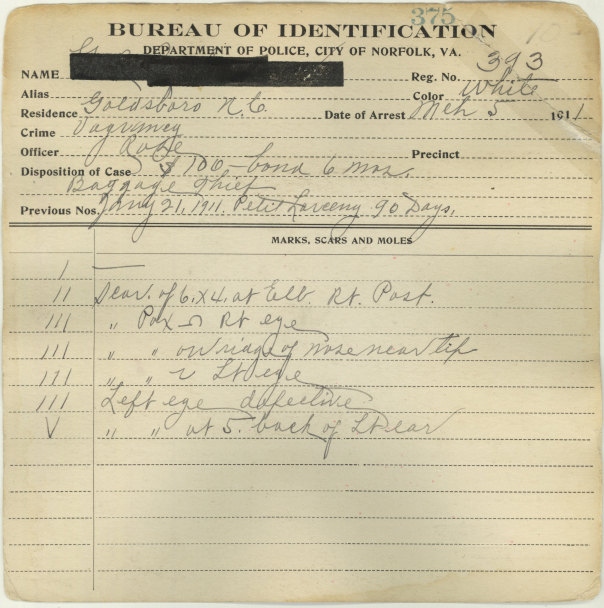 375
BUREAU OF IDENTIFICATION
DEPARTMENT OF POLICE, CITY OF NORFOLK, VA.
NAME Reg. No. 393
Alias Color White
Residence Goldsboro N.C. Date of Arrest Mch 5 1911
Crime Vagrancy
Officer Precinct
Disposition of Case $100 - bond 6 mos.
Baggage Thief
Previous Nos. Jany 21, 1911. Petit Larceny 90 Days.
MARKS, SCARS AND MOLES
I —
II Scar. of 6. x 4. at Elb. Rt. Post.
III " Pox Rt eye
III " " on ridge of nose near tip
III " " Lt eye
III Left eye defective
V " " at 5. back of Lt ear